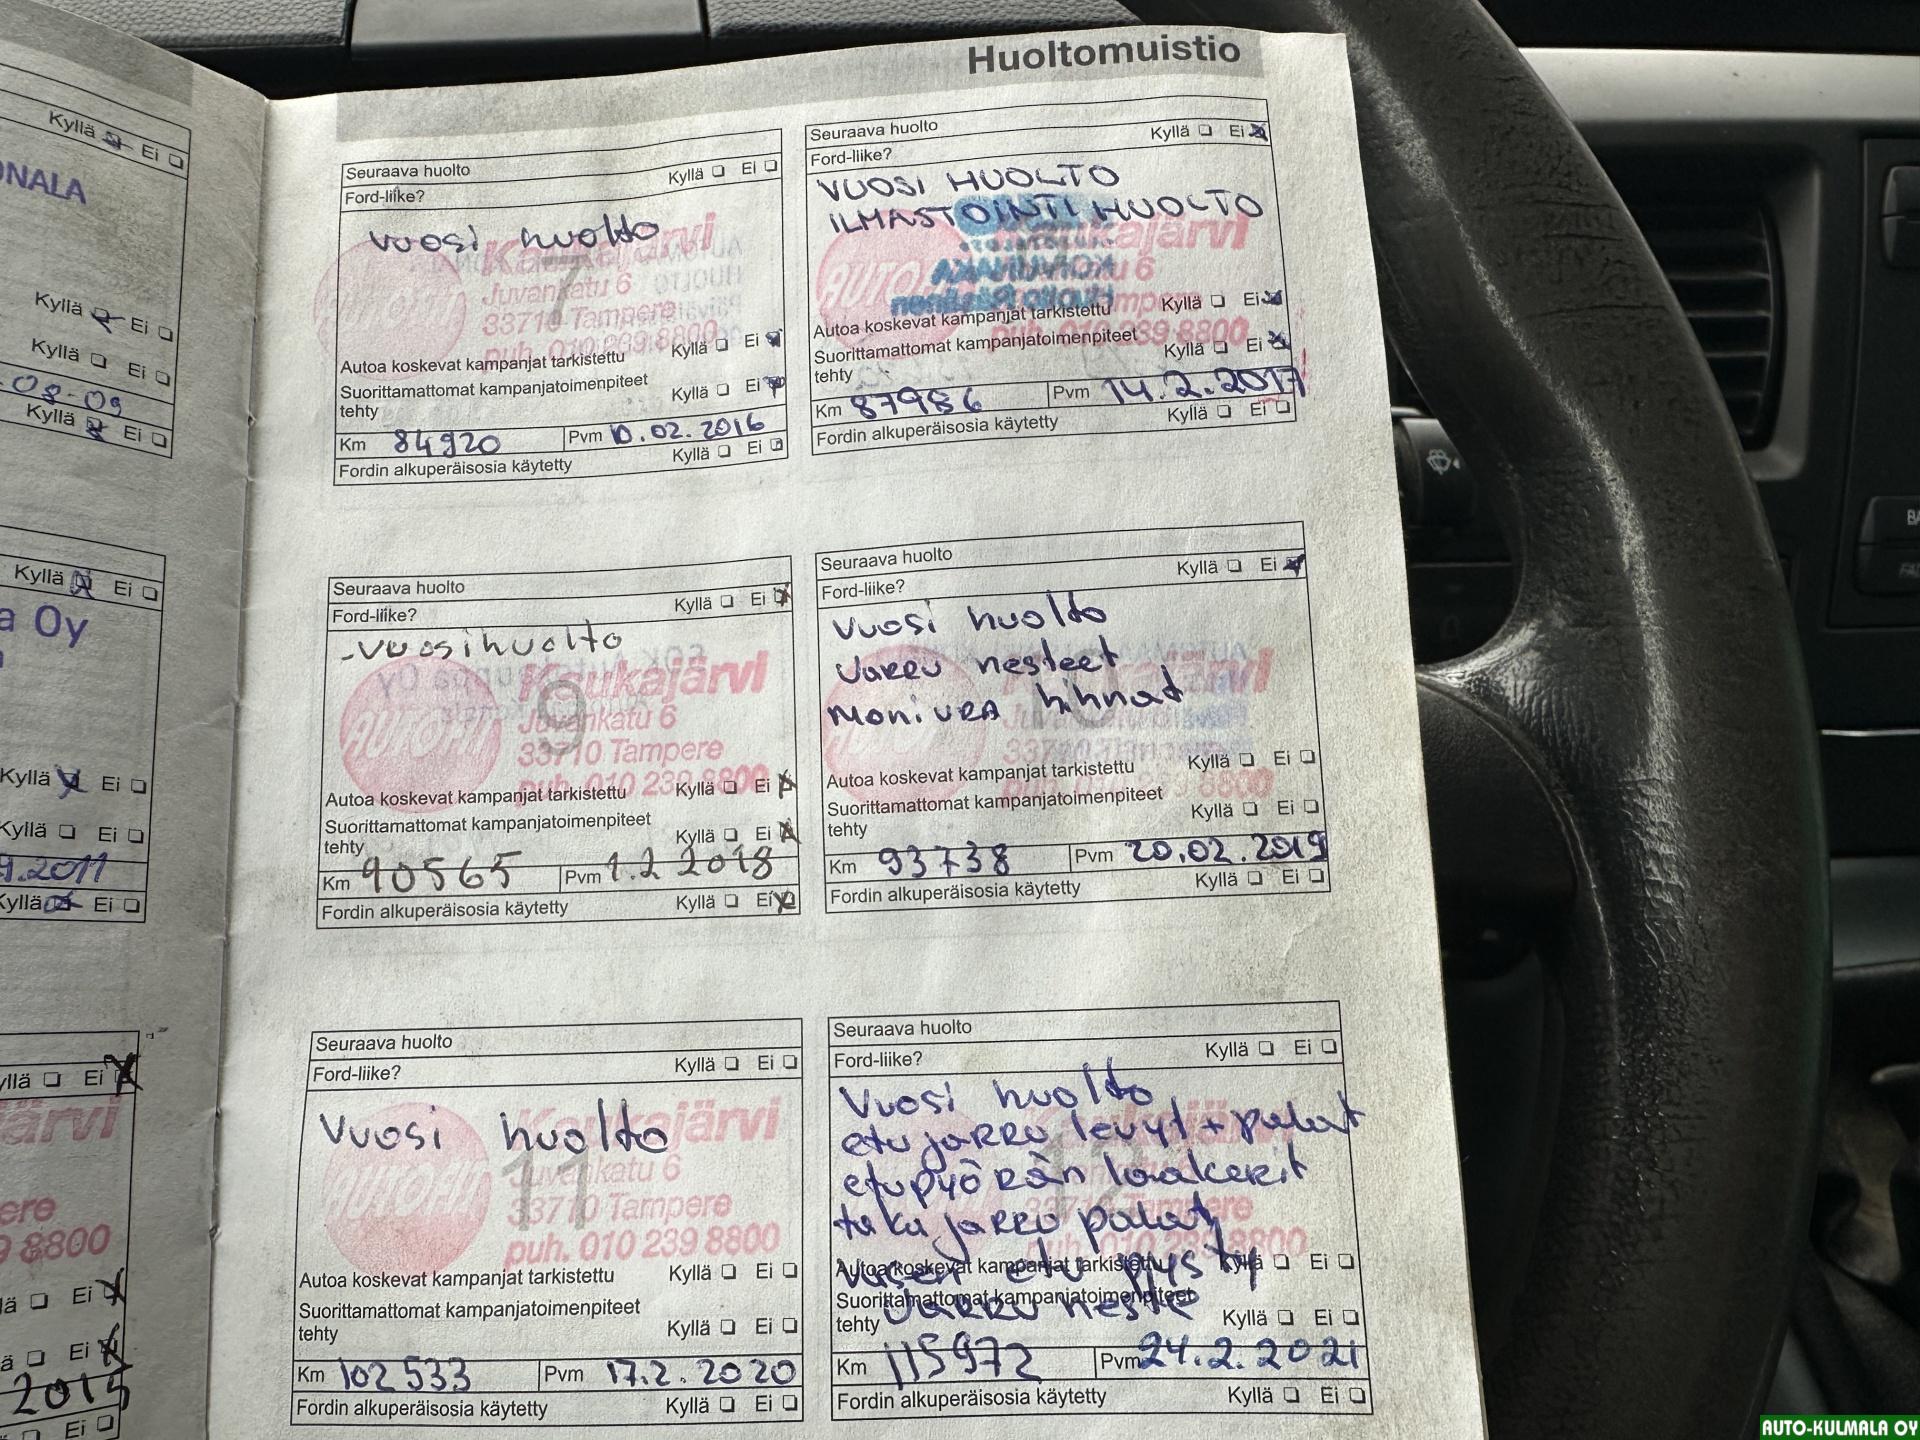 Huoltomuistio
Kyllä Ei
ONALA
Kyllä Ei
Kyllä Ei
08-09
Kyllä Ei
Kyllä Ei
a Oy
Kyllä Ei
Kyllä Ei
9.2011
Kyllä Ei
yllä Ei
järvi
ere
9 8800
lä Ei
ä Ei
2015
Ei
Seuraava huolto
Ford-liike? Kyllä Ei
Vuosi huolto
7
Kaukajärvi
Juvankatu 6
33710 Tampere
puh. 010 239 8800
Autoa koskevat kampanjat tarkistettu Kyllä Ei
Suorittamattomat kampanjatoimenpiteet
tehty Kyllä Ei
Km 84920 Pvm 10.02.2016
Fordin alkuperäisosia käytetty Kyllä Ei
Seuraava huolto
Ford-liike? Kyllä Ei
VUOSI HUOLTO
ILMASTOINTI HUOLTO
Autoa koskevat kampanjat tarkistettu Kyllä Ei
Suorittamattomat kampanjatoimenpiteet
tehty Kyllä Ei
Km 87986 Pvm 14.2.2017
Fordin alkuperäisosia käytetty Kyllä Ei
Seuraava huolto
Ford-liike? Kyllä Ei
-Vuosihuolto
9
AUTOHI
Kaukajärvi
Juvankatu 6
33710 Tampere
puh. 010 239 8800
Autoa koskevat kampanjat tarkistettu Kyllä Ei
Suorittamattomat kampanjatoimenpiteet
tehty Kyllä Ei
Km 90565 Pvm 1.2 2018
Fordin alkuperäisosia käytetty Kyllä Ei
Seuraava huolto
Ford-liike? Kyllä Ei
Vuosi huolto
Jarru nesteet
Moniura hihnat
Autoa koskevat kampanjat tarkistettu Kyllä Ei
Suorittamattomat kampanjatoimenpiteet
tehty Kyllä Ei
Km 93738 Pvm 20.02.2019
Fordin alkuperäisosia käytetty Kyllä Ei
Seuraava huolto
Ford-liike? Kyllä Ei
Vuosi huolto
11
Kaukajärvi
Juvankatu 6
33710 Tampere
puh. 010 239 8800
Autoa koskevat kampanjat tarkistettu Kyllä Ei
Suorittamattomat kampanjatoimenpiteet
tehty Kyllä Ei
Km 102533 Pvm 17.2.2020
Fordin alkuperäisosia käytetty Kyllä Ei
Seuraava huolto
Ford-liike? Kyllä Ei
Vuosi huolto
etu jarru levyt + palat
etupyörän laakerit
taka jarru palat
Vasen etu
Jarru neste
Autoa koskevat kampanjat tarkistettu Kyllä Ei
Suorittamattomat kampanjatoimenpiteet
tehty Kyllä Ei
Km 115972 Pvm 24.2.2021
Fordin alkuperäisosia käytetty Kyllä Ei
AUTO-KULMALA OY